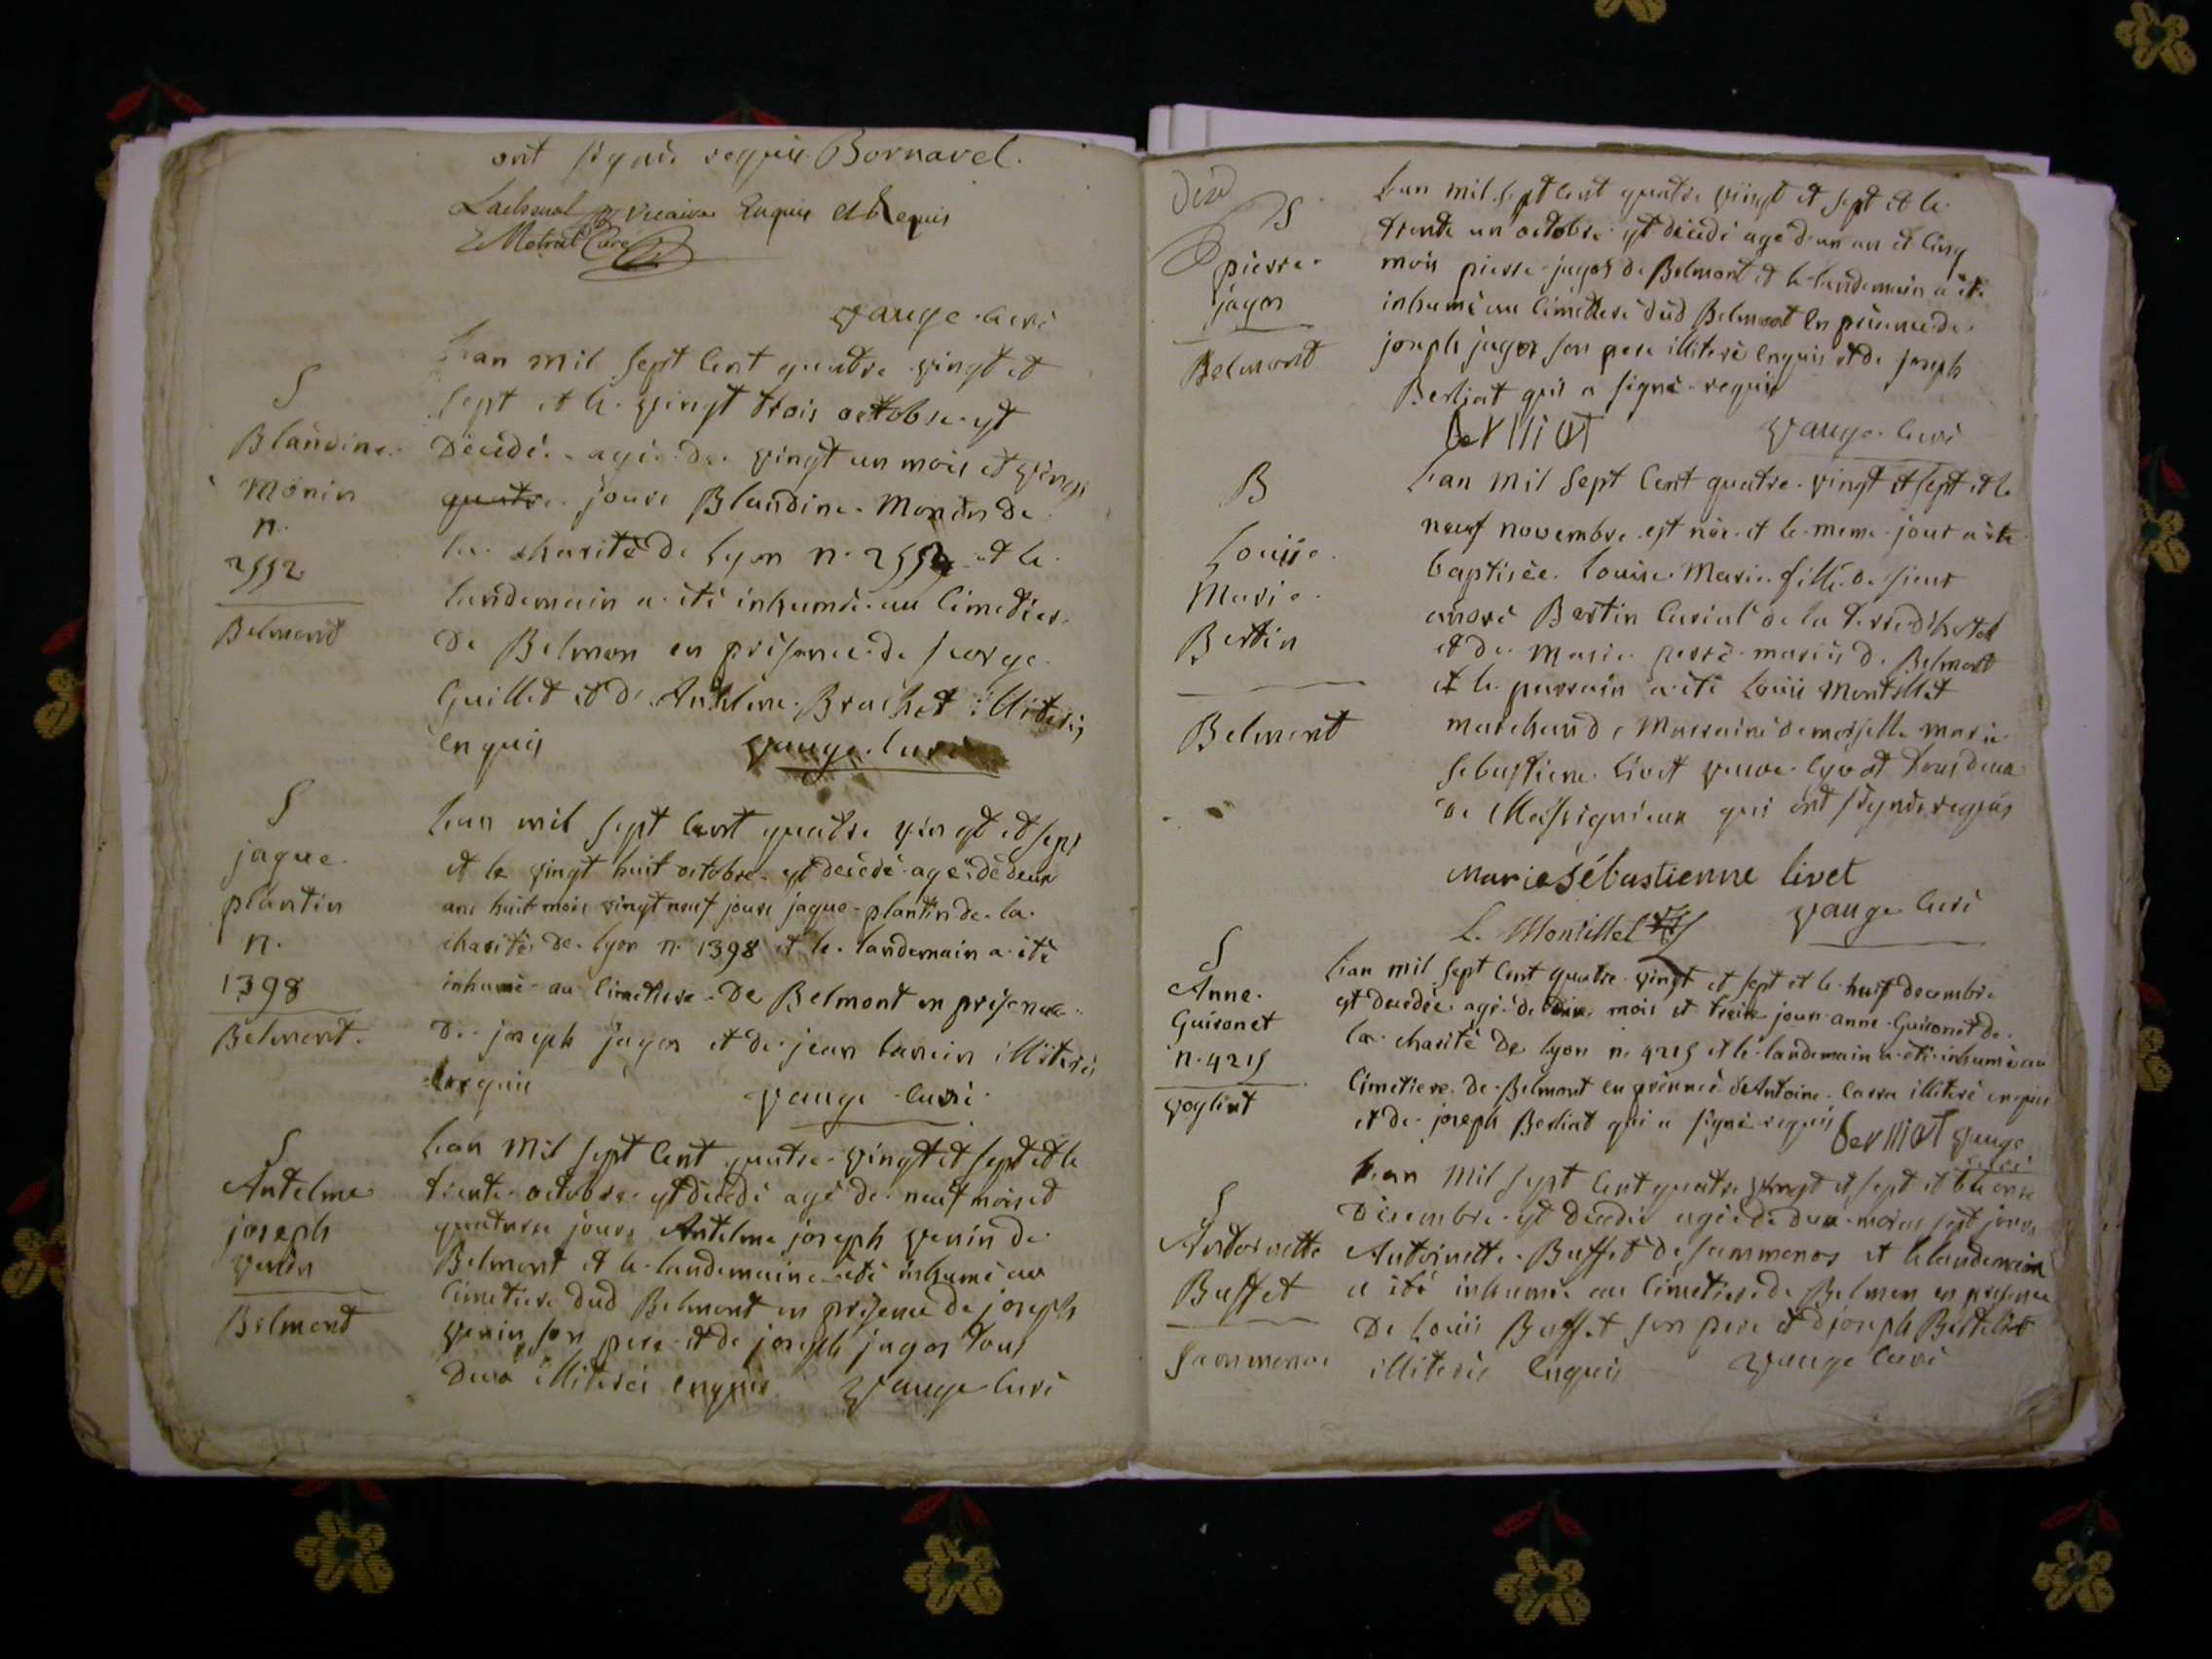 ont signé requis Bornarel.
vicaire Enquis et Requis
Curé
vauge curé
S
Blandine
Monin
n.
2552
Belmont
Lan mil sept cent quatre vingt et
sept et le vingt trois octobre est
décédé agée de vingt un mois et vingt
quatre jours Blandine Monin de
la charité de lyon n. 2552 et le
landemain a été inhumée au cimetier
de Belmon en présence de george
Guillet et d'Anthelme Brachet illiterés
enquis vauge curé
S
jaque
plantin
n.
1398
Belmont.
Lan mil sept cent quatre vingt et sept
et le vingt huit octobre est décédé agé de deux
ans huit mois vingt neuf jours jaque plantin de la
charité de lyon n. 1398 et le landemain a été
inhumé au cimetiere de Belmont en présence
de joseph jagor et de jean illiterés
enquis vauge curé
S
Antelme
joseph
venin
Belmont
Lan Mil sept cent quatre vingt et sept et le
trente octobre est décédé agé de neuf mois et
quatorse jours Antelme joseph venin de
Belmont et le landemain a été inhumé au
cimetiere dud Belmont en présence de joseph
venin son pere et de joseph jagor tous
deux illiterés enquis vauge curé
S
pierre
jagor
Belmont
Lan mil sept cent quatre vingt et sept et le
trente un octobre est décédé agé d'un an et cinq
mois pierre jagor de Belmont et le landemain a été
inhumé au cimetiere dud Belmont en présence de
joseph jagor son pere illiteré enquis et de joseph
Berliat qui a signé requis
berliat vauge curé
B
Louise
Marie
Bertin
Belmont
Lan mil sept cent quatre vingt et sept et le
neuf novembre est née et le meme jour a été
baptisée Louise Marie fille de sieur
André Bertin curial de la terre d'hostel
et de Marie mariés de Belmont
et le parrain a été Louis Montillet
marchand Marraine demoiselle marie
sebastiene Livet veuve tous deux
de Massignieux qui ont signé requis
Marie Sébastienne livet
L. Montillet vauge curé
S
Anne
Guironet
n. 4215
voglent
Lan mil sept cent quatre vingt et sept et le huit decembre
est décédée agé de mois et treize jours anne Guironet de
la charité de lyon n. 4215 et le landemain a été inhumé au
cimetiere de Belmont en présence de Antoine Carra illiteré enquis
et de joseph Berliat qui a signé requis berliat vauge
curé
S
Antoinette
Buffet
Sammenos
Lan mil sept cent quatre vingt et sept et le onse
Décembre est décédée agée de deux mois sept jours
Antoinette Buffet de Sammenos et le landemain
a été inhumée au cimetiere de Belmon en présence
de Louis Buffet son pere et d joseph Bertelier
illiterés enquis vauge curé